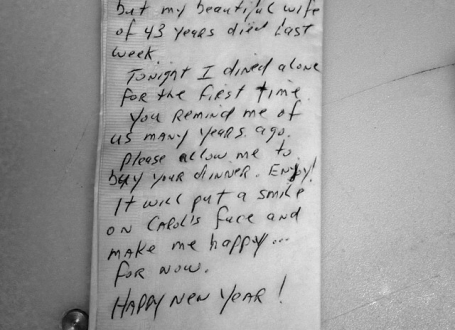 but my beautiful wife
of 43 years died last
week.
Tonight I dined alone
for the first time.
You remind me of
us many years ago.
Please allow me to
buy your dinner. Enjoy!
It will put a smile
on Carol's face and
make me happy...
for now.
Happy New Year!